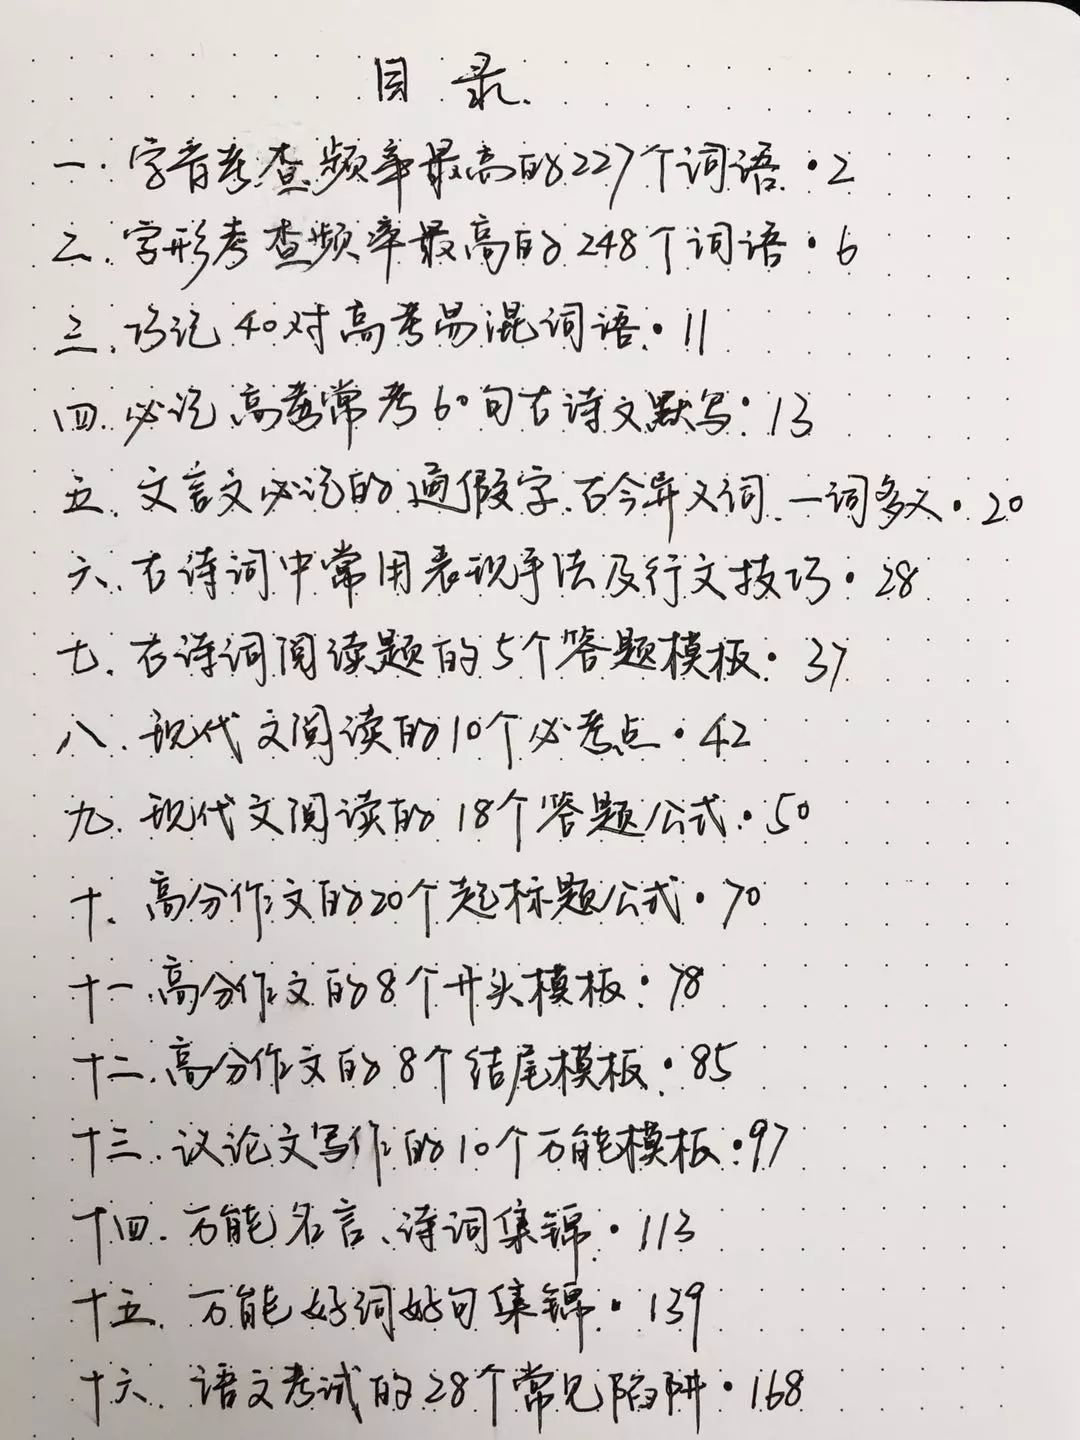 目录
一.字音考查频率最高的227个词语·2
二.字形考查频率最高的248个词语·6
三.巧记40对高考易混词语·11
四.必记高考常考60句古诗文默写·13
五.文言文必记的通假字.古今异义词.一词多义·20
六.古诗词中常用表现手法及行文技巧·28
七.古诗词阅读题的5个答题模板·37
八.现代文阅读的10个必考点·42
九.现代文阅读的18个答题公式·50
十.高分作文的20个起标题公式·70
十一.高分作文的8个开头模板·78
十二.高分作文的8个结尾模板·85
十三.议论文写作的10个万能模板·97
十四.万能名言、诗词集锦·113
十五.万能好词好句集锦·139
十六.语文考试的28个常见陷阱·168